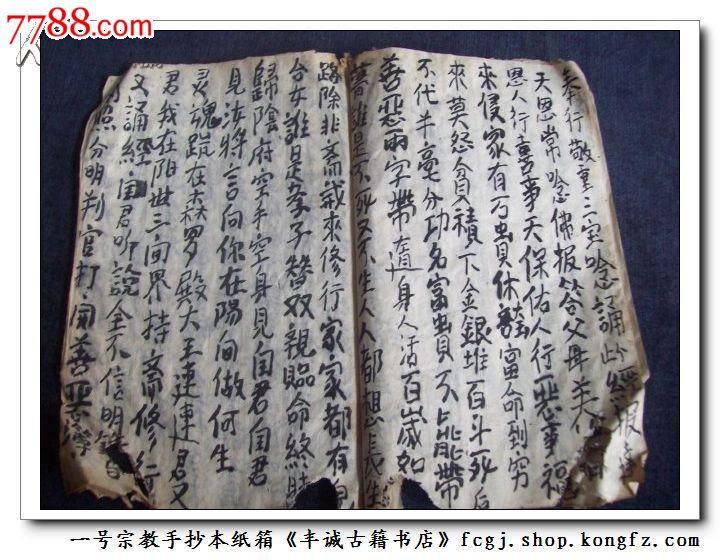 7788.com
奉行敬重三宝念誦此經報
天恩常念佛報答父母养
恩人行喜事天保佑人行惡事禍
來侵家有万貫休誇富命到穷
來莫怨貪積下金銀堆百斗死后
不代半毫分功名富貴不能帶
善惡兩字帶在身人活百歲如
是不死又不生人人都想長生
路除非斋戒來修行家家都有
合女誰是孝子替双親臨命終時
歸陰府空手空身見闫君闫君
見汝將言向你在陽间做何生
灵魂跪在森罗殿大王連連君又
君我在阳世三间界持斋修行
又誦經闫君听說全不信明鏡
照分明判官打開善惡簿
一号宗教手抄本纸箱《丰诚古籍书店》fcgj.shop.kongfz.com